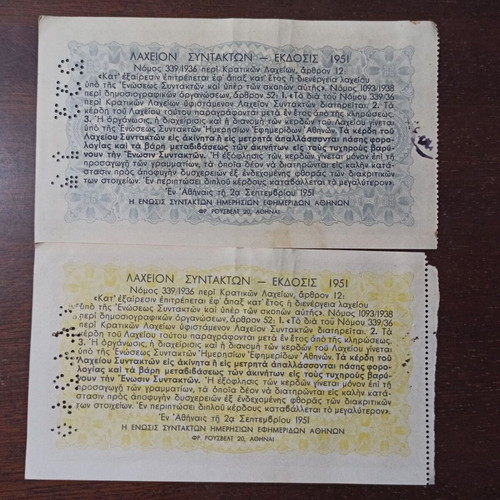 ΛΑΧΕΙΟΝ ΣΥΝΤΑΚΤΩΝ — ΕΚΔΟΣΙΣ 1951
Νόμος 339/1936 περὶ Κρατικῶν Λαχείων, ἄρθρον 12:
«Κατ' ἐξαίρεσιν ἐπιτρέπεται ἐφ' ἅπαξ κατ' ἔτος ἡ διενέργεια λαχείου
ὑπὸ τῆς Ἑνώσεως Συντακτῶν καὶ ὑπὲρ τῶν σκοπῶν αὐτῆς». Νόμος 1093/1938
περὶ δημοσιογραφικῶν ὀργανώσεων, ἄρθρον 52: 1. «Τὸ διὰ τοῦ Νόμου 339/36
περὶ Κρατικῶν Λαχείων ὑφιστάμενον Λαχεῖον Συντακτῶν διατηρεῖται. 2. Τὰ κέρδη
τοῦ Λαχείου τούτου παραγράφονται μετὰ ἓν ἔτος ἀπὸ τῆς κληρώσεως.
3. Ἡ ὀργάνωσις, ἡ διαχείρισις καὶ ἡ διανομὴ τῶν κερδῶν τοῦ Λαχείου γίνεται
ὑπὸ τῆς Ἑνώσεως Συντακτῶν Ἡμερησίων Ἐφημερίδων Ἀθηνῶν. Τὰ κέρδη τοῦ
Λαχείου Συντακτῶν εἰς ἀκίνητα ἢ εἰς μετρητὰ ἀπαλλάσσονται πάσης φορο-
λογίας καὶ τὰ βάρη μεταβιβάσεως τῶν ἀκινήτων εἰς τοὺς τυχηροὺς βαρύ-
νουν τὴν Ἕνωσιν Συντακτῶν». Ἡ ἐξόφλησις τῶν κερδῶν γίνεται μόνον ἐπὶ τῇ
προσαγωγῇ τῶν γραμματίων, τὰ ὁποῖα δέον νὰ διατηροῦνται εἰς καλὴν κατά-
στασιν πρὸς ἀποφυγὴν δυσχερειῶν ἐξ ἐνδεχομένης φθορᾶς τῶν διακριτικῶν
των στοιχείων. Ἐν περιπτώσει διπλοῦ κέρδους καταβάλλεται τὸ μεγαλύτερον».
Ἐν Ἀθήναις τῇ 2ᾳ Σεπτεμβρίου 1951
Η ΕΝΩΣΙΣ ΣΥΝΤΑΚΤΩΝ ΗΜΕΡΗΣΙΩΝ ΕΦΗΜΕΡΙΔΩΝ ΑΘΗΝΩΝ
ΦΡ. ΡΟΥΣΒΕΛΤ 20, ΑΘΗΝΑΙ
ΛΑΧΕΙΟΝ ΣΥΝΤΑΚΤΩΝ — ΕΚΔΟΣΙΣ 1951
Νόμος 339/1936 περὶ Κρατικῶν Λαχείων, ἄρθρον 12:
«Κατ' ἐξαίρεσιν ἐπιτρέπεται ἐφ' ἅπαξ κατ' ἔτος ἡ διενέργεια λαχείου
ὑπὸ τῆς Ἑνώσεως Συντακτῶν καὶ ὑπὲρ τῶν σκοπῶν αὐτῆς». Νόμος 1093/1938
περὶ δημοσιογραφικῶν ὀργανώσεων, ἄρθρον 52: 1. «Τὸ διὰ τοῦ Νόμου 339/36
περὶ Κρατικῶν Λαχείων ὑφιστάμενον Λαχεῖον Συντακτῶν διατηρεῖται. 2. Τὰ
κέρδη τοῦ Λαχείου τούτου παραγράφονται μετὰ ἓν ἔτος ἀπὸ τῆς κληρώσεως.
3. Ἡ ὀργάνωσις, ἡ διαχείρισις καὶ ἡ διανομὴ τῶν κερδῶν τοῦ Λαχείου γίνεται
ὑπὸ τῆς Ἑνώσεως Συντακτῶν Ἡμερησίων Ἐφημερίδων Ἀθηνῶν. Τὰ κέρδη τοῦ
Λαχείου Συντακτῶν εἰς ἀκίνητα ἢ εἰς μετρητὰ ἀπαλλάσσονται πάσης φορο-
λογίας καὶ τὰ βάρη μεταβιβάσεως τῶν ἀκινήτων εἰς τοὺς τυχηροὺς βαρύ-
νουν τὴν Ἕνωσιν Συντακτῶν». Ἡ ἐξόφλησις τῶν κερδῶν γίνεται μόνον ἐπὶ τῇ
προσαγωγῇ τῶν γραμματίων, τὰ ὁποῖα δέον νὰ διατηροῦνται εἰς καλὴν κατά-
στασιν πρὸς ἀποφυγὴν δυσχερειῶν ἐξ ἐνδεχομένης φθορᾶς τῶν διακριτικῶν
των στοιχείων. Ἐν περιπτώσει διπλοῦ κέρδους καταβάλλεται τὸ μεγαλύτερον».
Ἐν Ἀθήναις τῇ 2ᾳ Σεπτεμβρίου 1951
Η ΕΝΩΣΙΣ ΣΥΝΤΑΚΤΩΝ ΗΜΕΡΗΣΙΩΝ ΕΦΗΜΕΡΙΔΩΝ ΑΘΗΝΩΝ
ΦΡ. ΡΟΥΣΒΕΛΤ 20, ΑΘΗΝΑΙ